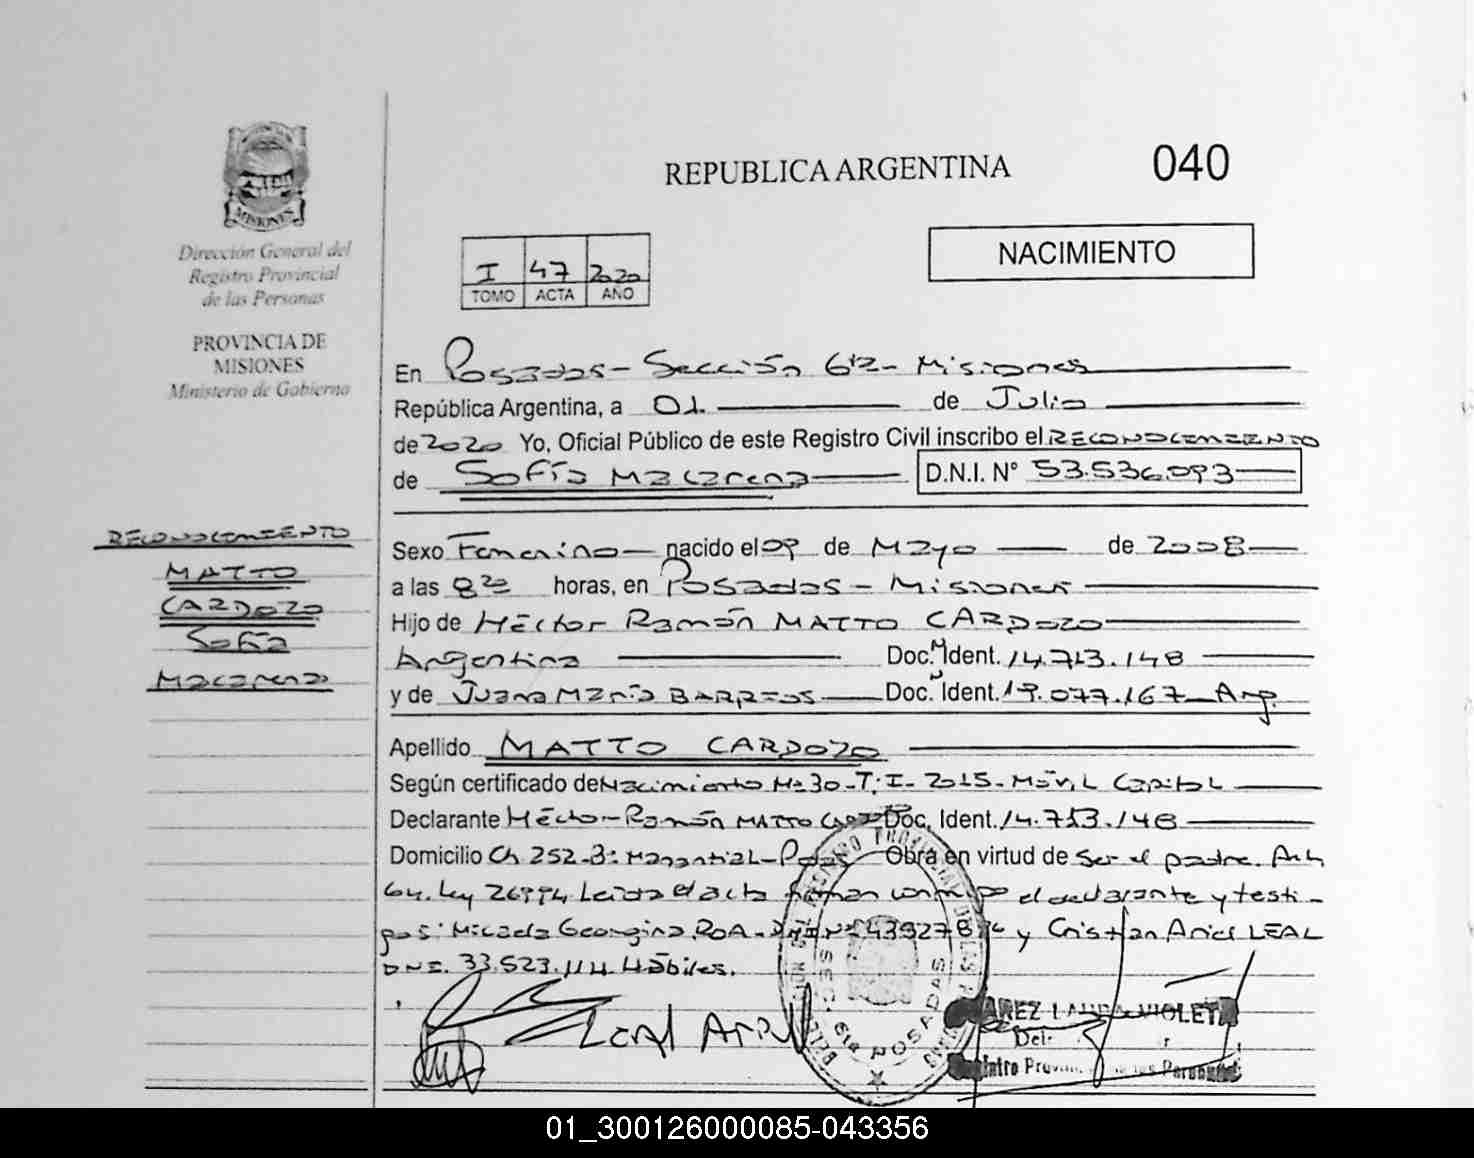 REPUBLICA ARGENTINA
040
MISIONES
Dirección General del
Registro Provincial
de las Personas
PROVINCIA DE
MISIONES
Ministerio de Gobierno
I 47 2020
TOMO ACTA AÑO
NACIMIENTO
En Posadas - Sección 6ta - Misiones
República Argentina, a 01. de Julio
de 2020 Yo, Oficial Público de este Registro Civil inscribo el RECONOCIMIENTO
de Sofía Macarena D.N.I. Nº 53.536.093
RECONOCIMIENTO
MATTO
CARDOZO
Sofía
Macarena
Sexo Femenino nacido el 09 de Mayo de 2008
a las 8 20 horas, en Posadas - Misiones
Hijo de Héctor Ramón MATTO CARDOZO
Argentina Doc. Ident. 14.713.148
y de Juana María BARRIOS Doc. Ident. 19.077.167 Arg.
Apellido MATTO CARDOZO
Según certificado de Nacimiento Nº 30 - T: I - 2015 - Móvil Capital
Declarante Héctor Ramón MATTO CARDOZO Doc. Ident. 14.713.148
Domicilio Ch 252 - Bº Manantial - Pdas Obra en virtud de ser el padre. Art
64. Ley 26994 Leída el acta firman conmigo el declarante y testi-
gos: Micaela Georgina ROA - DNI Nº y Cristian Ariel LEAL
DNI. 33.523.114 Hábiles.
Leal Ariel
SEC. 6ta POSADAS
LAURA VIOLETA
Del.
01_300126000085-043356